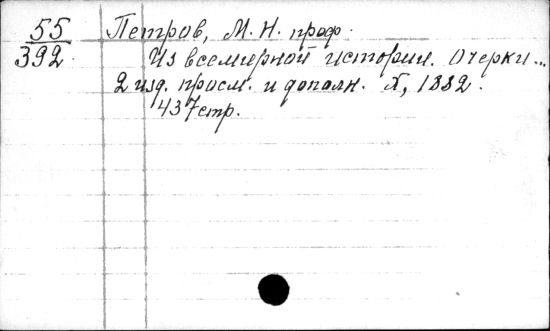 55 Петров, М. Н. проф.
392. Из всемирной истории. Очерки...
2 изд. просм. и дополн. Х, 1882.
437 стр.